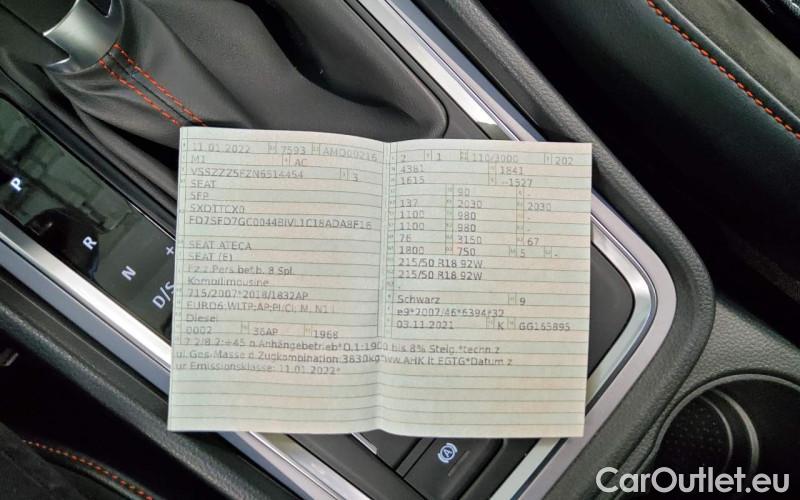 11.01.2022 7593 AMD00216
M1 AC
VSSZZZ5FZN6514454 3
SEAT
5FP
SXDTTCX0
FD7SFD7GC0044BIVL1C18ADA8E16
SEAT ATECA
SEAT (E)
Fz.z.Pers.bef.b. 8 Spl.
Kombilimousine
715/2007*2018/1832AP
EURO6;WLTP;AP;PI/CI; M, N1 I
Diesel
0002 36AP 1968
2 1 110/3000 202
4381 1841
1615 -1527
90 -
137 2030 2030
1100 980 -
1100 980 -
76 3150 67
1800 750 5 -
215/50 R18 92W
215/50 R18 92W
-
Schwarz 9
e9*2007/46*6394*32
03.11.2021 K GG165895
7.2/8.2:+45 b.Anhängebetrieb*O.1:1900 bis 8% Steig.*techn.z
ul.Ges.Masse d.Zugkombination:3830kg*ww.AHK lt.EGTG*Datum z
ur Emissionsklasse: 11.01.2022*
P
R
N
D/S
+
A
CarOutlet.eu